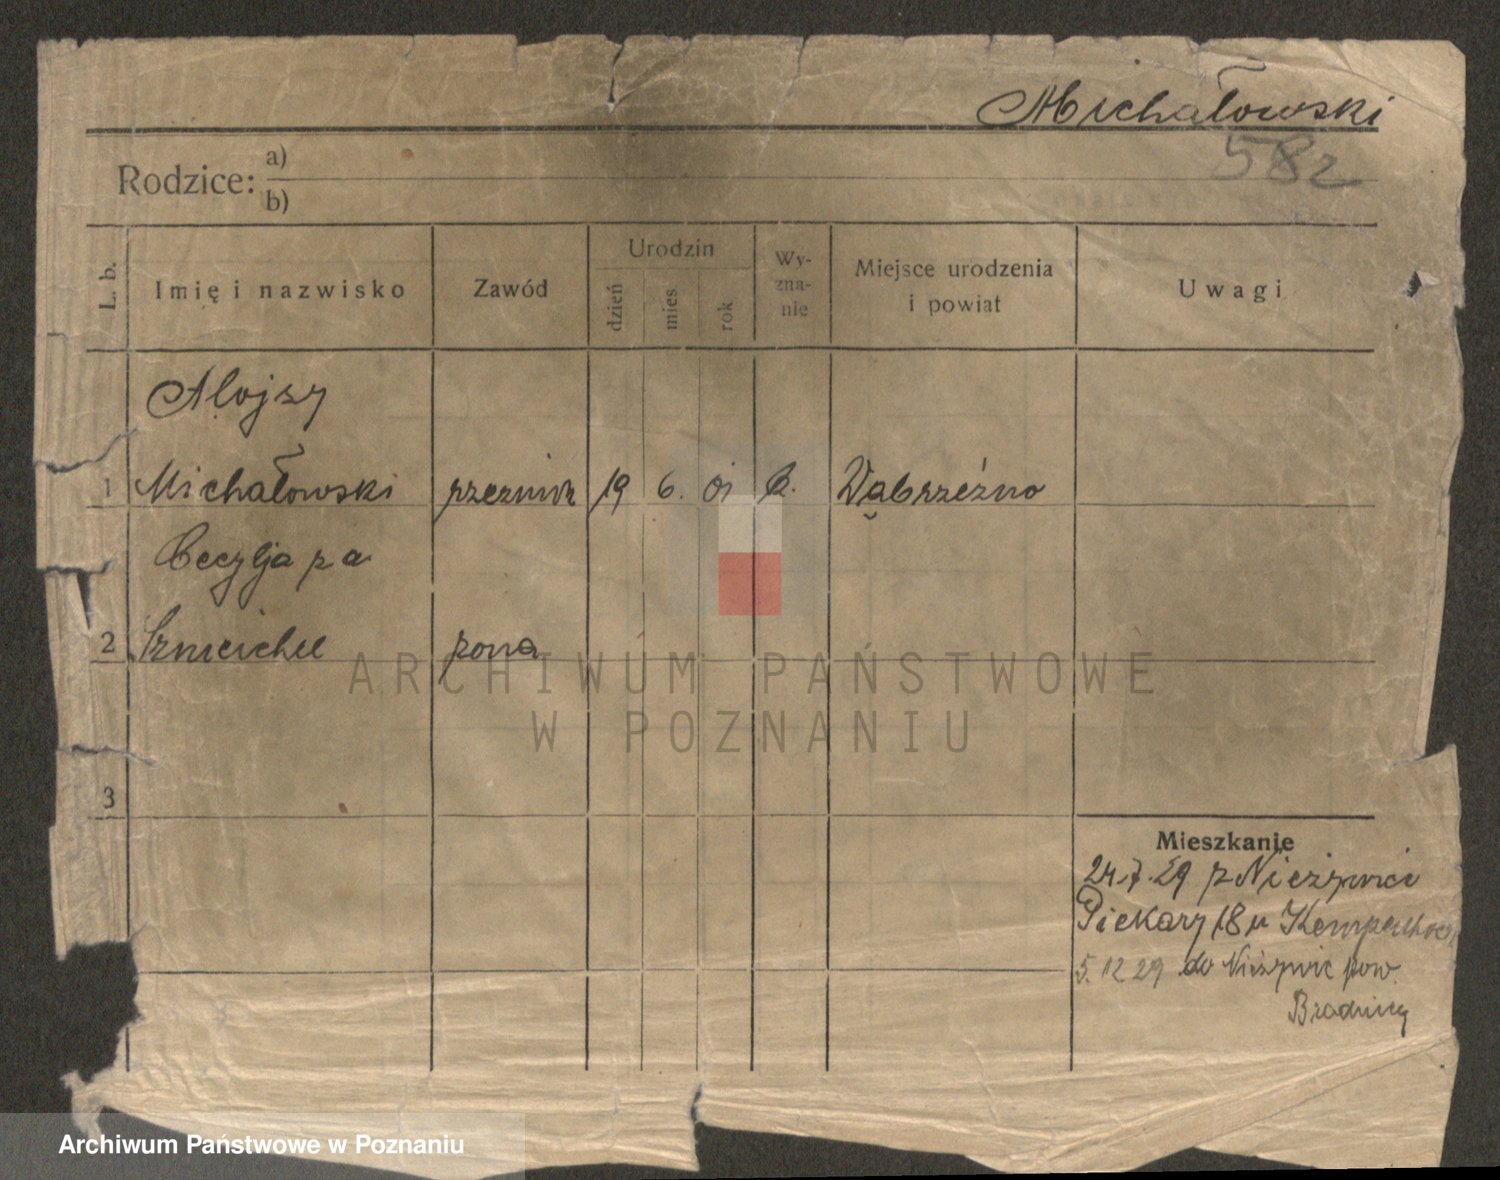 Michałowski
582
Rodzice: a)
b)
L. b.
Imię i nazwisko
Zawód
Urodzin
dzień
mies
rok
Wy-
zna-
nie
Miejsce urodzenia
i powiat
Uwagi
Alojzy
1 Michałowski rzeźnik 19 6. 01 k. Wąbrzeźno
Cecylja z a
2 żona
3
Mieszkanie
24.7.29 z Nieżywić
Piekary 18 u
5.12 29 do Nieżywić pow.
Brodnicy
ARCHIWUM PAŃSTWOWE
W POZNANIU
Archiwum Państwowe w Poznaniu